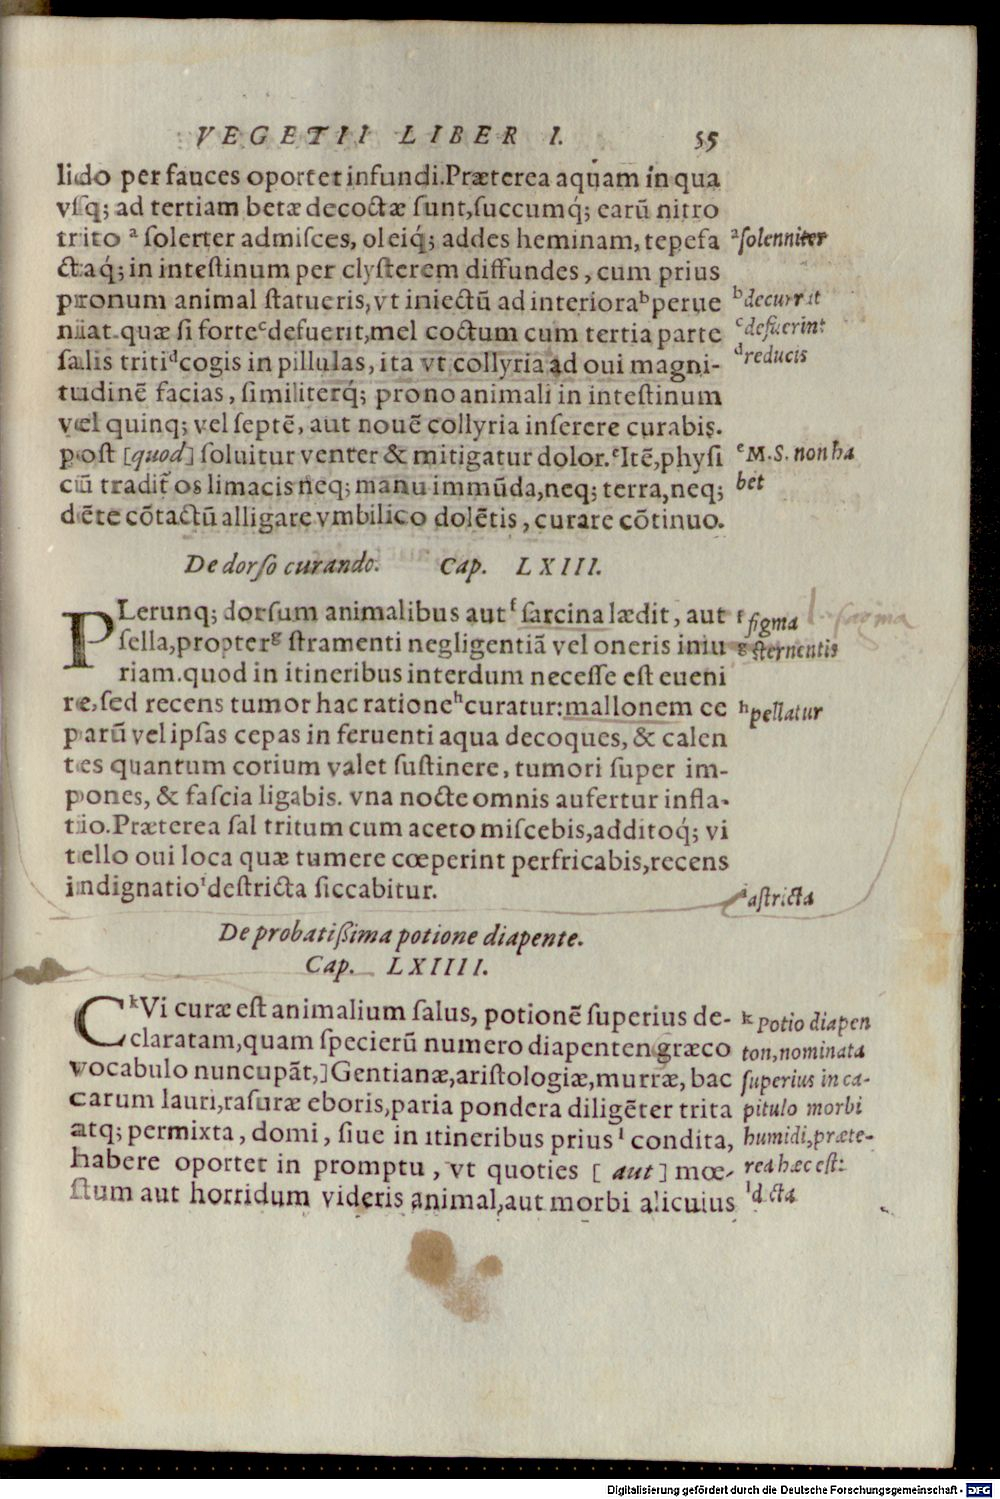 VEGETII LIBER I. 55
lido per fauces oportet infundi. Præterea aquam in qua
vſq; ad tertiam betæ decoctæ ſunt, ſuccumq́; earū nitro
trito ᵃ ſolerter admiſces, oleiq́; addes heminam, tepefa
ctaq́; in inteſtinum per clyſterem diffundes, cum prius
pronum animal ſtatueris, vt iniectū ad interiora ᵇ perue
niat. quæ ſi forte ᶜ defuerit, mel coctum cum tertia parte
ſalis triti ᵈ cogis in pillulas, ita vt collyria ad oui magni-
tudinē facias, ſimiliterq́; prono animali in inteſtinum
vel quinq; vel ſeptē, aut nouē collyria inſerere curabis.
poſt [quod] ſoluitur venter & mitigatur dolor. ᵉ Itē, phyſi
cū tradit̃ os limacis neq; manu immūda, neq; terra, neq;
dēte cōtactū alligare vmbilico dolētis, curare cōtinuo.
ᵃ ſolenniter
ᵇ decurrit
ᶜ defuerint
ᵈ reducis
ᵉ M.S. non ha
bet
De dorſo curando. Cap. LXIII.
PLerunq; dorſum animalibus aut ᶠ ſarcina lædit, aut
ſella, propter ᵍ ſtramenti negligentiā vel oneris iniu
riam. quod in itineribus interdum neceſſe eſt eueni
re, ſed recens tumor hac ratione ʰ curatur: mallonem ce
parū vel ipſas cepas in feruenti aqua decoques, & calen
tes quantum corium valet ſuſtinere, tumori ſuper im-
pones, & faſcia ligabis. vna nocte omnis aufertur infla-
tio. Præterea ſal tritum cum aceto miſcebis, additoq́; vi
tello oui loca quæ tumere cœperint perfricabis, recens
indignatio ⁱ deſtricta ſiccabitur.
ᶠ ſigma
l. sagma
ᵍ ſternentis
ʰ pellatur
ⁱ aſtricta
De probatiſsima potione diapente.
Cap. LXIIII.
CᵏVi curæ eſt animalium ſalus, potionē ſuperius de-
claratam, quam ſpecierū numero diapenten græco
vocabulo nuncupāt,] Gentianæ, ariſtologiæ, murræ, bac
carum lauri, raſuræ eboris, paria pondera diligēter trita
atq; permixta, domi, ſiue in itineribus prius ˡ condita,
habere oportet in promptu, vt quoties [ aut ] mœ-
ſtum aut horridum videris animal, aut morbi alicuius
ᵏ Potio diapen
ton, nominata
ſuperius in ca-
pitulo morbi
humidi, præte-
rea hæc eſt:
ˡ dicta
Digitalisierung gefördert durch die Deutsche Forschungsgemeinschaft - DFG